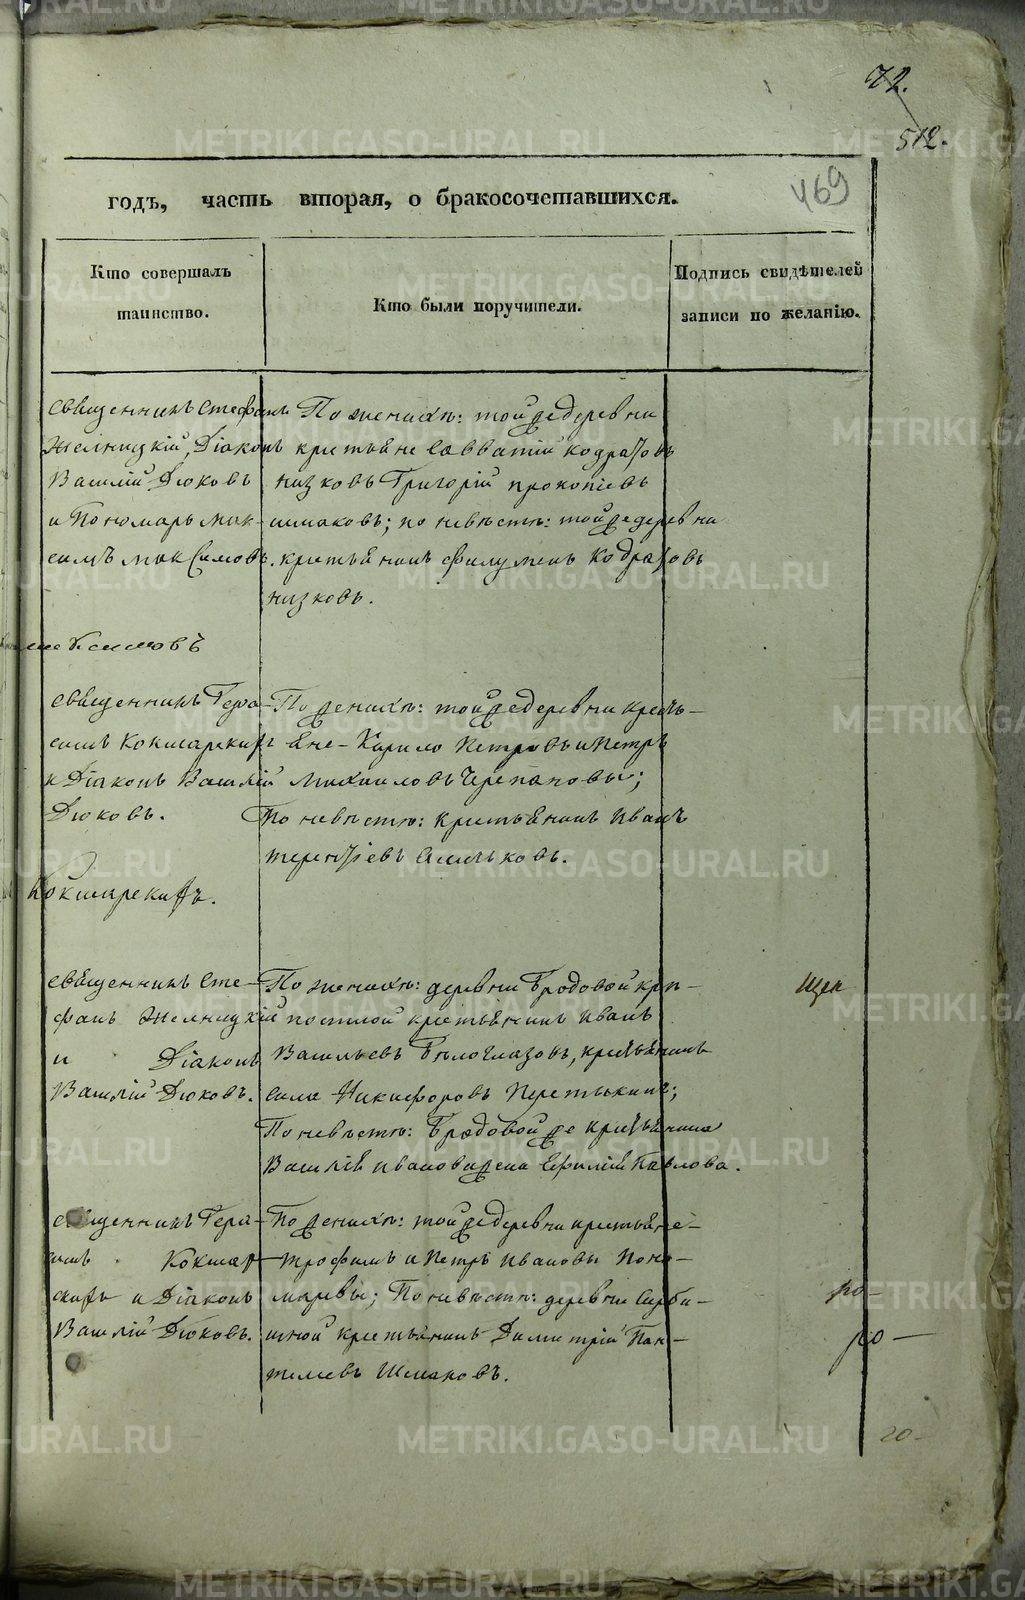 72.
512.
469
годъ, часть вторая, о бракосочетавшихся.
Кто совершалъ
таинство.
Кто были поручители.
Подпись свидѣтелей
записи по желанію.
священникъ Стефанъ
Желницкій, Діаконъ
Василій Дюковъ
и Пономарь Мак-
симъ Максимовъ.
По женихѣ: той же деревни
крестьяне Савватій Кодратовъ
Низковъ Григорій Прокопіевъ
Шмаковъ; по невѣстѣ: той же деревни
крестьянинъ Филуменъ Кодратовъ
Низковъ.
Максимовъ
священникъ Гера-
симъ Кокшарскихъ
и Діаконъ Василій
Дюковъ.
По женихѣ: той же деревни кресть-
яне Кирило Петровъ и Петръ
Михаиловъ Черепановы;
По невѣстѣ: крестьянинъ Иванъ
Терентіевъ
Кокшарскихъ.
священникъ Сте-
фанъ Желницкій
и Діаконъ
Василій Дюковъ.
По женихѣ: деревни Бродовой крѣ-
постной крестьянинъ Иванъ
Васильевъ Бѣлоглазовъ, крестьянинъ
Сила Никифоровъ
По невѣстѣ: Бродовой же крестьянина
Василія Иванова жена Павлова.
священникъ Гера-
симъ Кокшар-
скихъ и Діаконъ
Василій Дюковъ.
По женихѣ: той же деревни крестьяне
Трофимъ и Петръ Ивановы Поно-
маревы; По невѣстѣ: деревни Сарби-
шной крестьянинъ Димитрій Пан-
телеевъ Шмаковъ.
METRIKI.GASO-URAL.RU